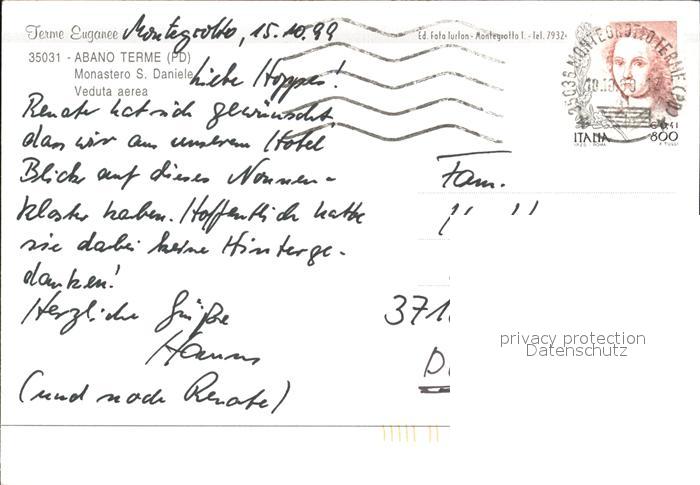 Terme Euganee
Montegrotto, 15.10.99
Ed. Foto Turlon - Montegrotto T. - Tel. 7932
35031 - ABANO TERME (PD)
Monastero S. Daniele
Veduta aerea
Liebe Hoppes!
Renate hat sich gewünscht
dass wir aus unserem Hotel
Blick auf dieses Nonnen-
kloster haben. Hoffentlich hatte
sie dabei keine Hinterge-
danken!
Herzliche Grüße
Hanns
(und noch Renate)
Fam.
371
D
35036 MONTEGROTTO TERME (PD)
ITALIA 800
I.P.Z.S. - ROMA F. TULLI
privacy protection
Datenschutz